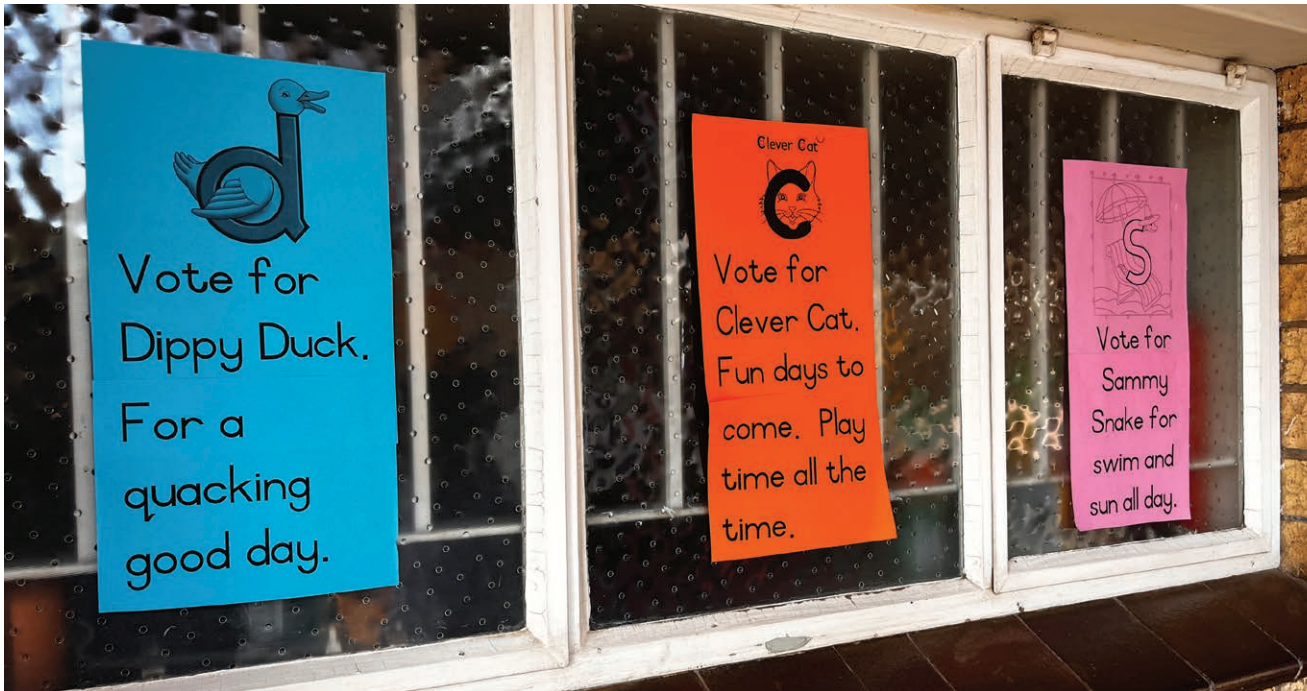 d
Vote for
Dippy Duck.
For a
quacking
good day.
Clever Cat
c
Vote for
Clever Cat.
Fun days to
come. Play
time all the
time.
S
Vote for
Sammy
Snake for
swim and
sun all day.